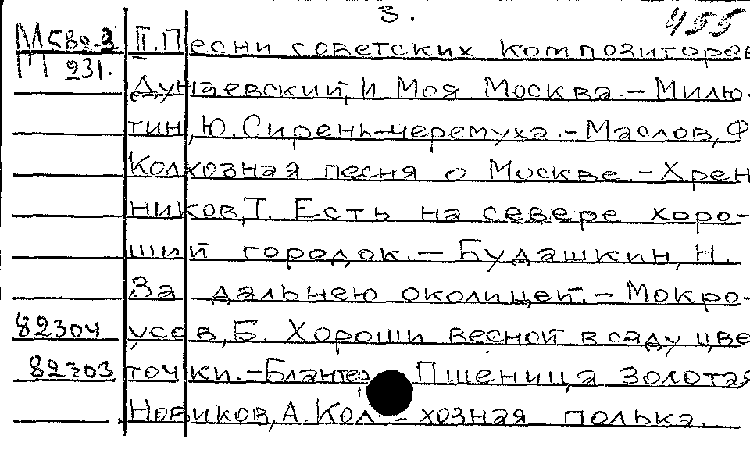 3.
455
М 582-3 II. Песни советских композиторов
М 231. Дунаевский, И Моя Москва. – Милю-
тин, Ю. Сирень-черемуха. – Маслов, Ф
Колхозная песня о Москве – Хрен
ников, Т. Есть на севере хоро-
ший городок. – Будашкин, Н.
За дальнею околицей. – Мокро-
82304 усов, Б. Хороши весной в саду цве
82303 точки. – Бланте Пшеница золотая
Новиков, А. Кол – хозная полька.